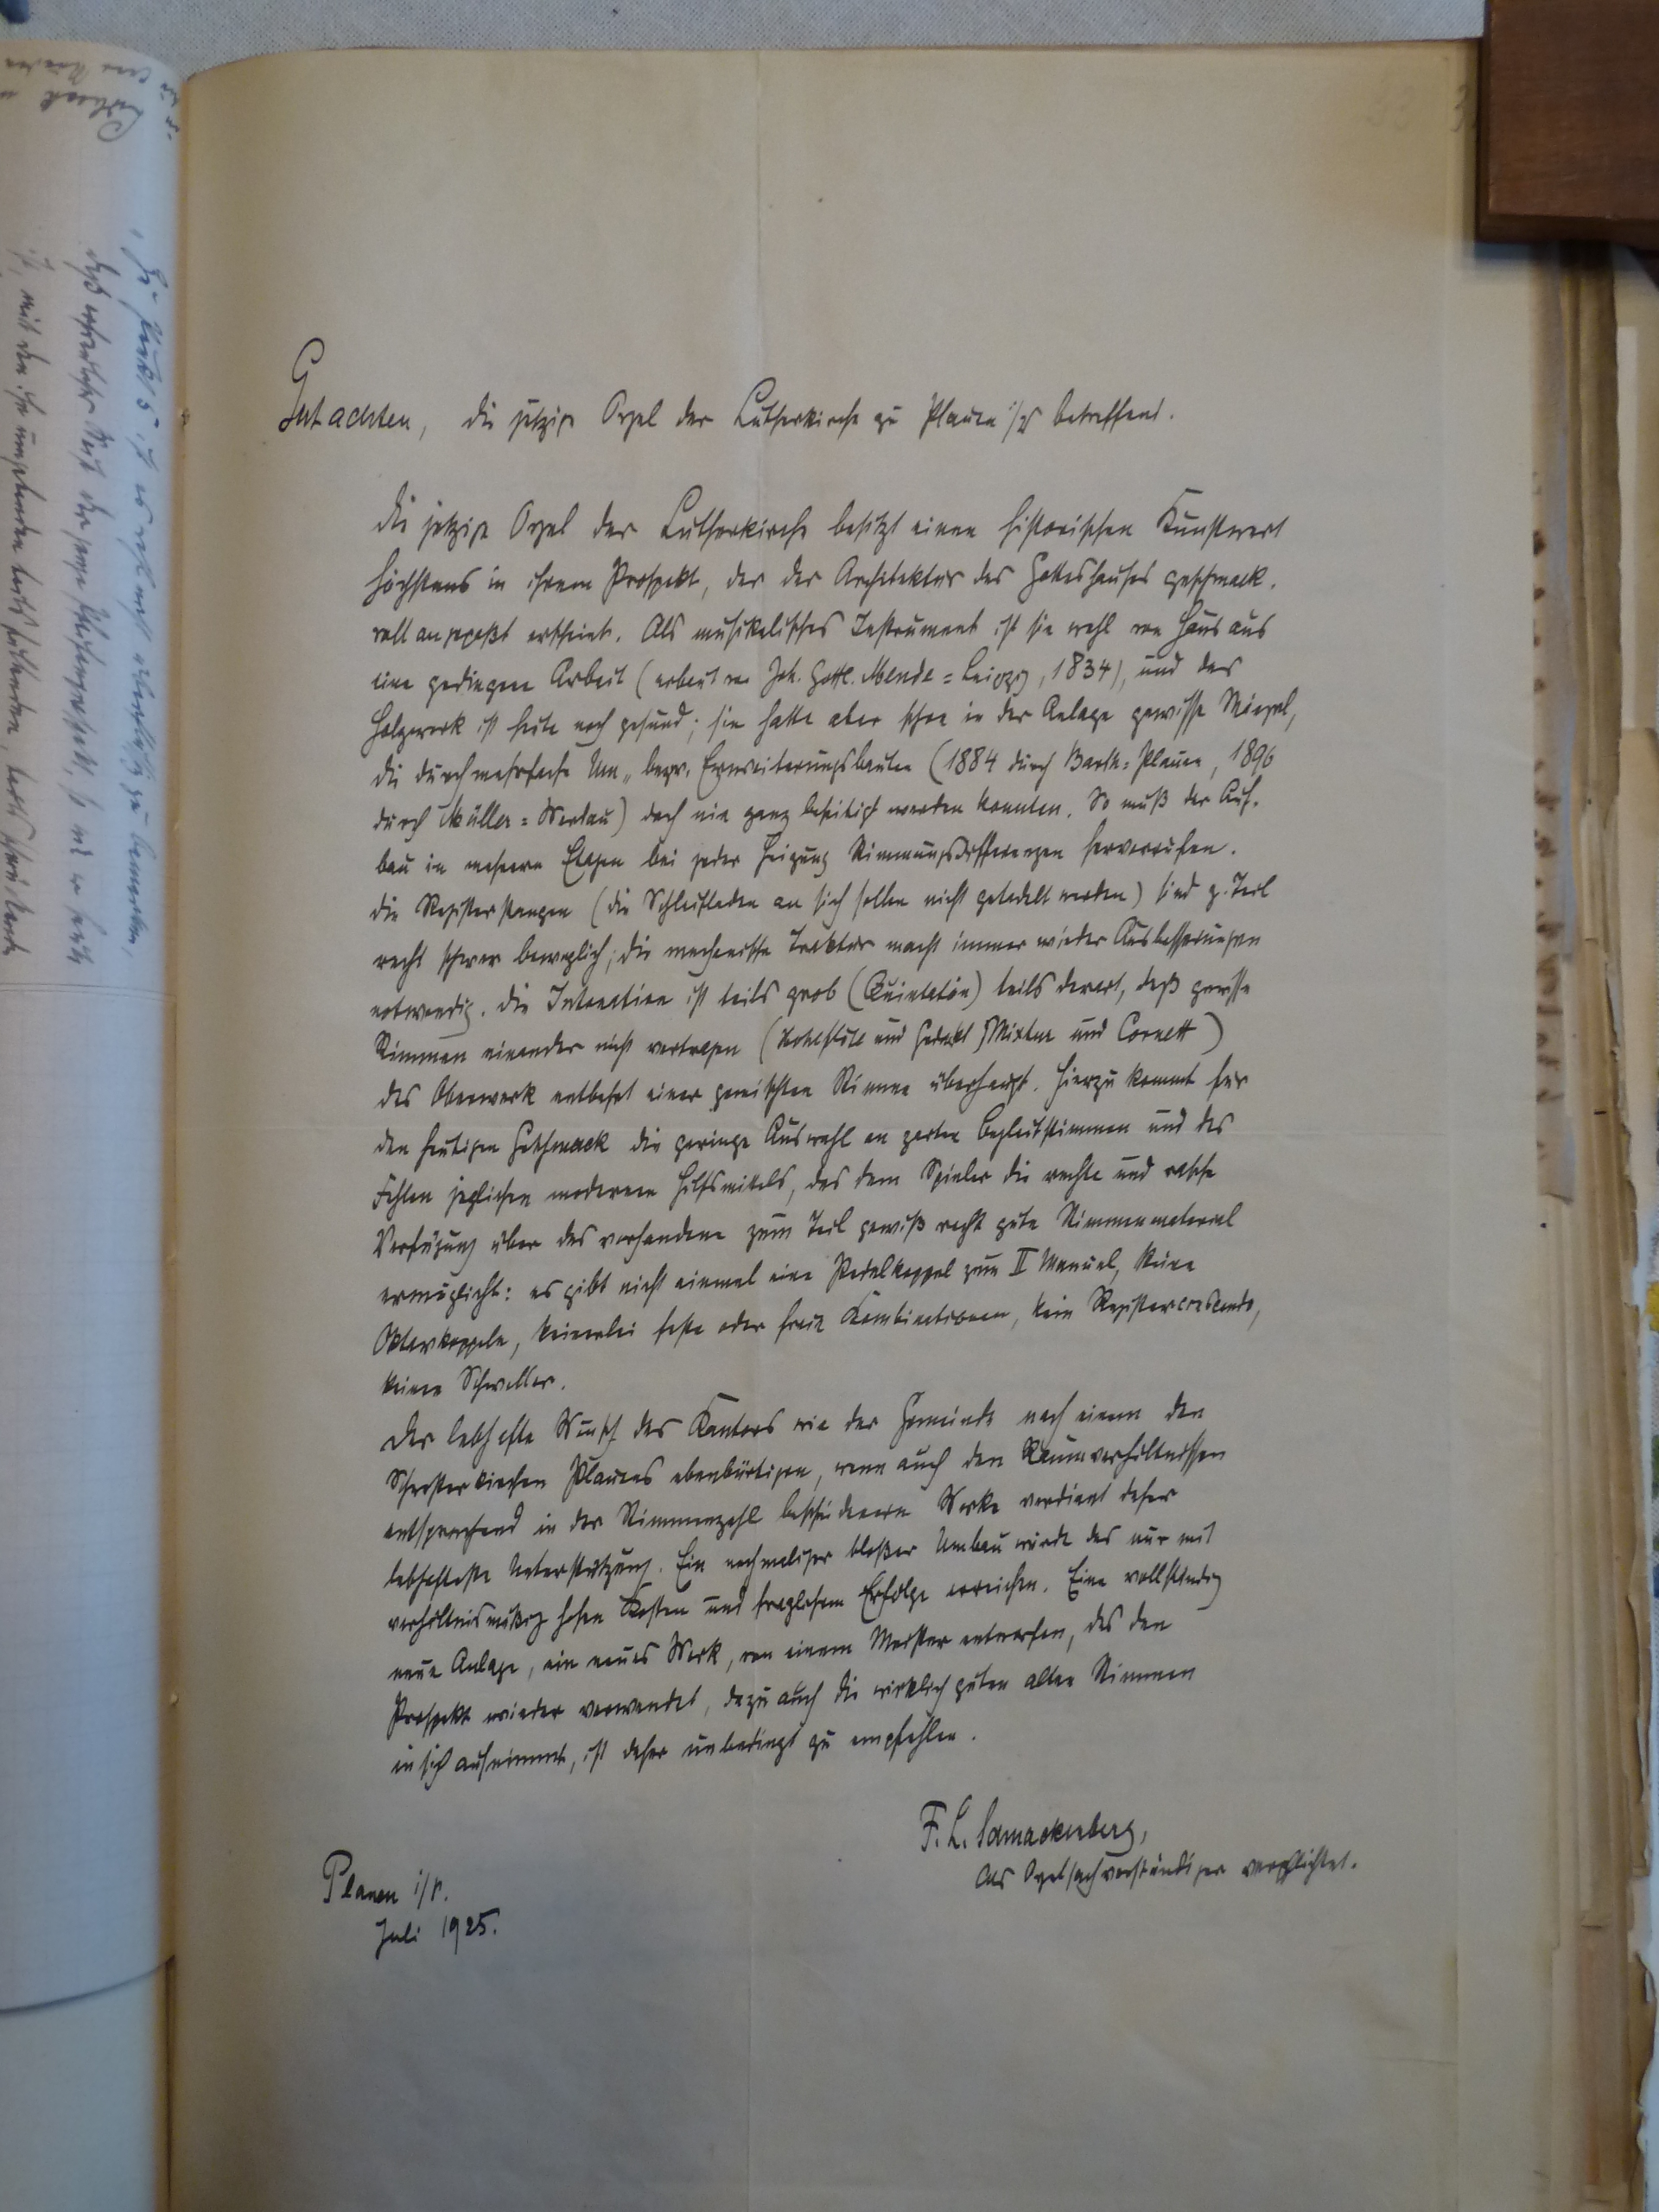 Gutachten, die jetzige Orgel der Lutherkirche zu Plauen i/V betreffend.
Die jetzige Orgel der Lutherkirche besitzt einen historischen Kunstwert
höchstens in ihrem Prospekt, der der Architektur des Gotteshauses geschmack-
voll angepaßt erscheint. Als musikalisches Instrument ist sie wohl von Haus aus
eine gediegene Arbeit (erbaut von Joh. Gottl. Mende = Leipzig, 1834), und das
Holzwerk ist heute noch gesund; sie hatte aber schon in der Anlage gewisse Mängel,
die durch mehrfache Um- bezw. Erweiterungsbauten (1884 durch Barth = Plauen, 1896
durch Müller = Werdau) doch nie ganz beseitigt werden konnten. So muß der Auf-
bau in mehrern Etagen bei jeder Heizung Stimmungsdifferenzen hervorrufen.
Die Registerstangen (die Schleifladen an sich sollen nicht getadelt werden) sind z. Teil
recht schwer beweglich; die mechanische Traktur macht immer wieder Ausbesserungen
notwendig. Die Intonation ist teils grob (Quintatön) teils derart, daß gewisse
Stimmen einander nicht vertragen (Hohlflöte und Gedackt, Mixtur und Cornett)
das Oberwerk entbehrt einer gemischten Stimme überhaupt. Hierzu kommt für
den heutigen Geschmack die geringe Auswahl an zarten Begleitstimmen und das
Fehlen jeglichen modernen Hilfsmittels, das dem Spieler die rechte und rasche
Verfügung über das vorhandene zum Teil gewiß recht gute Stimmenmaterial
ermöglicht: es gibt nicht einmal eine Pedalkoppel zum II Manual, keine
Oktavkoppeln, keinerlei feste oder freie Kombinationen, kein Registercrescendo,
keinen Schweller.
Der lebhafte Wunsch des Kantors wie der Gemeinde nach einem den
Schwesterkirchen Plauens ebenbürtigen, wenn auch den Raumverhältnissen
entsprechend in der Stimmenzahl bescheidenern Werke verdient daher
lebhafteste Unterstützung. Ein nochmaliger bloßer Umbau würde das nur mit
verhältnismäßig hohen Kosten und fraglichem Erfolge erreichen. Eine vollständig
neue Anlage, ein neues Werk, von einem Meister entworfen, das den
Prospekt wieder verwendet, dazu auch die wirklich guten alten Stimmen
in sich aufnimmt, ist daher unbedingt zu empfehlen.
F. L. Schnackenberg,
als Orgelsachverständiger verpflichtet.
Plauen i/V.
Juli 1925.